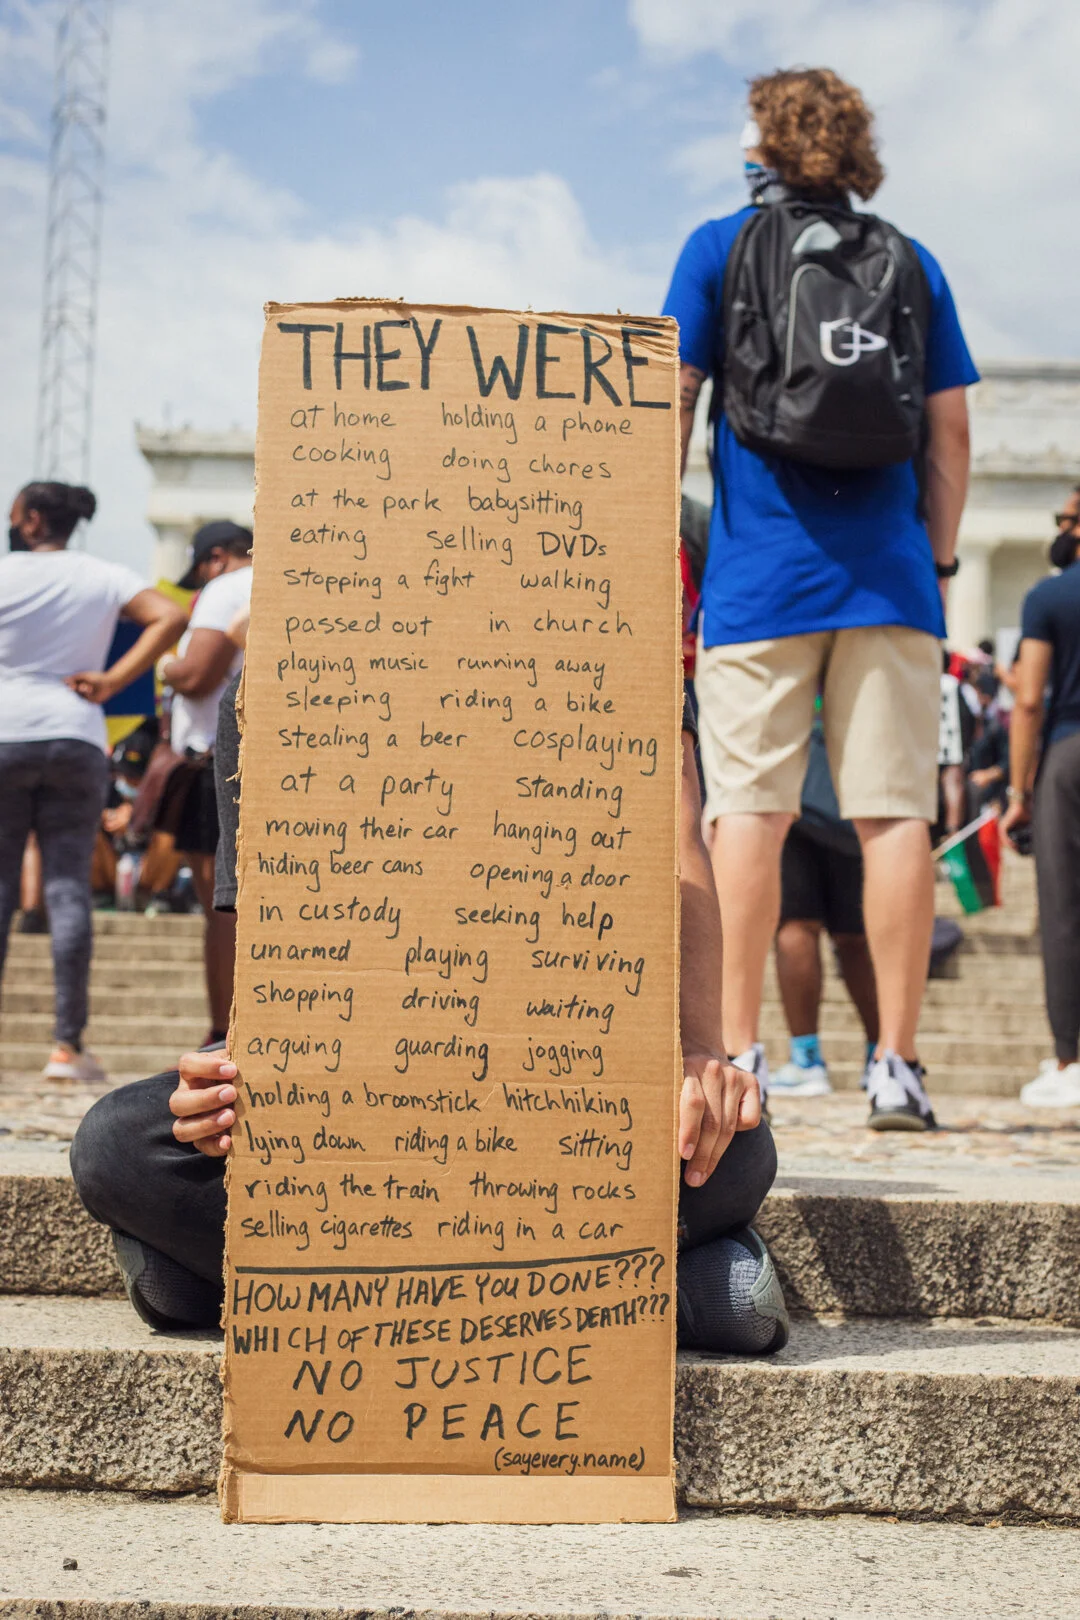 THEY WERE
at home holding a phone
cooking doing chores
at the park babysitting
eating selling DVDs
stopping a fight walking
passed out in church
playing music running away
sleeping riding a bike
stealing a beer cosplaying
at a party standing
moving their car hanging out
hiding beer cans opening a door
in custody seeking help
unarmed playing surviving
shopping driving waiting
arguing guarding jogging
holding a broomstick hitchhiking
lying down riding a bike sitting
riding the train throwing rocks
selling cigarettes riding in a car
HOW MANY HAVE YOU DONE???
WHICH OF THESE DESERVES DEATH???
NO JUSTICE
NO PEACE
(sayevery.name)